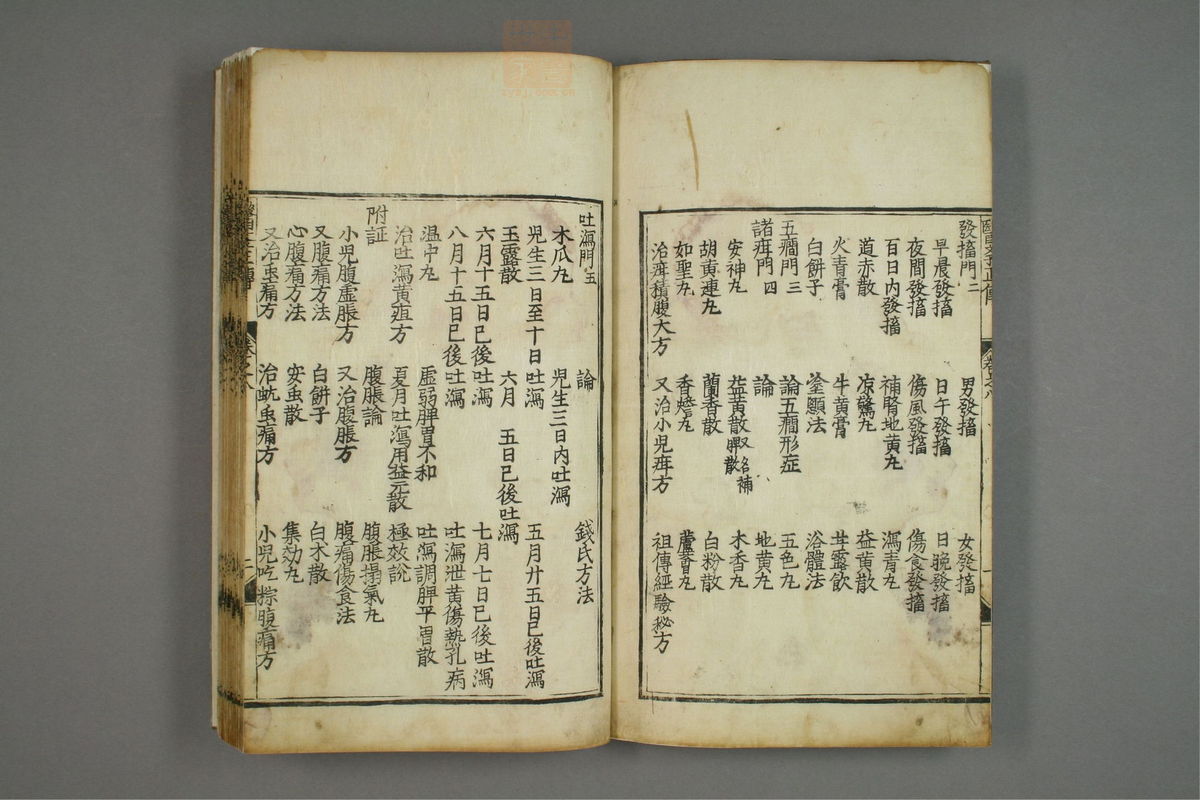 發搐門二 男發搐 女發搐
早晨發搐 日午發搐 日晚發搐
夜間發搐 傷風發搐 傷食發搐
百日内發搐 補腎地黄丸 瀉青丸
道赤散 凉驚丸 益黄散
火青膏 牛黄膏 甘露飲
白餅子 顯法 浴體法
五癇門三 論五癇形症 五色丸
諸疳門四 論 地黄丸
安神丸 益黄散又名補脾散 木香丸
胡黄連丸 蘭香散 白粉散
如聖丸 香蟾丸 蘆薈丸
治疳積腹大方 又治小兒疳方 祖傳經驗秘方
卷之八
吐瀉門五 論 錢氏方法
木瓜丸 児生三日内吐瀉
児生三日至十日吐瀉 五月廿五日已後吐瀉
玉露散 六月 五日已後吐瀉
六月十五日已後吐瀉 七月七日已後吐瀉
八月十五日已後吐瀉 吐瀉泄黄傷熱乳病
温中丸 虚弱脾胃不和 吐瀉調脾平胃散
治吐瀉黄疸方 夏月吐瀉用益元散 極效説
附証 腹脹論 腹脹搨氣丸
小児腹虚脹方 又治腹脹方 腹痛傷食法
又腹痛方法 白餅子 白术散
心腹痛方法 安虫散 集効丸
又治虫痛方 治蚘虫痛方 小児吃粽腹痛方
卷之八 二